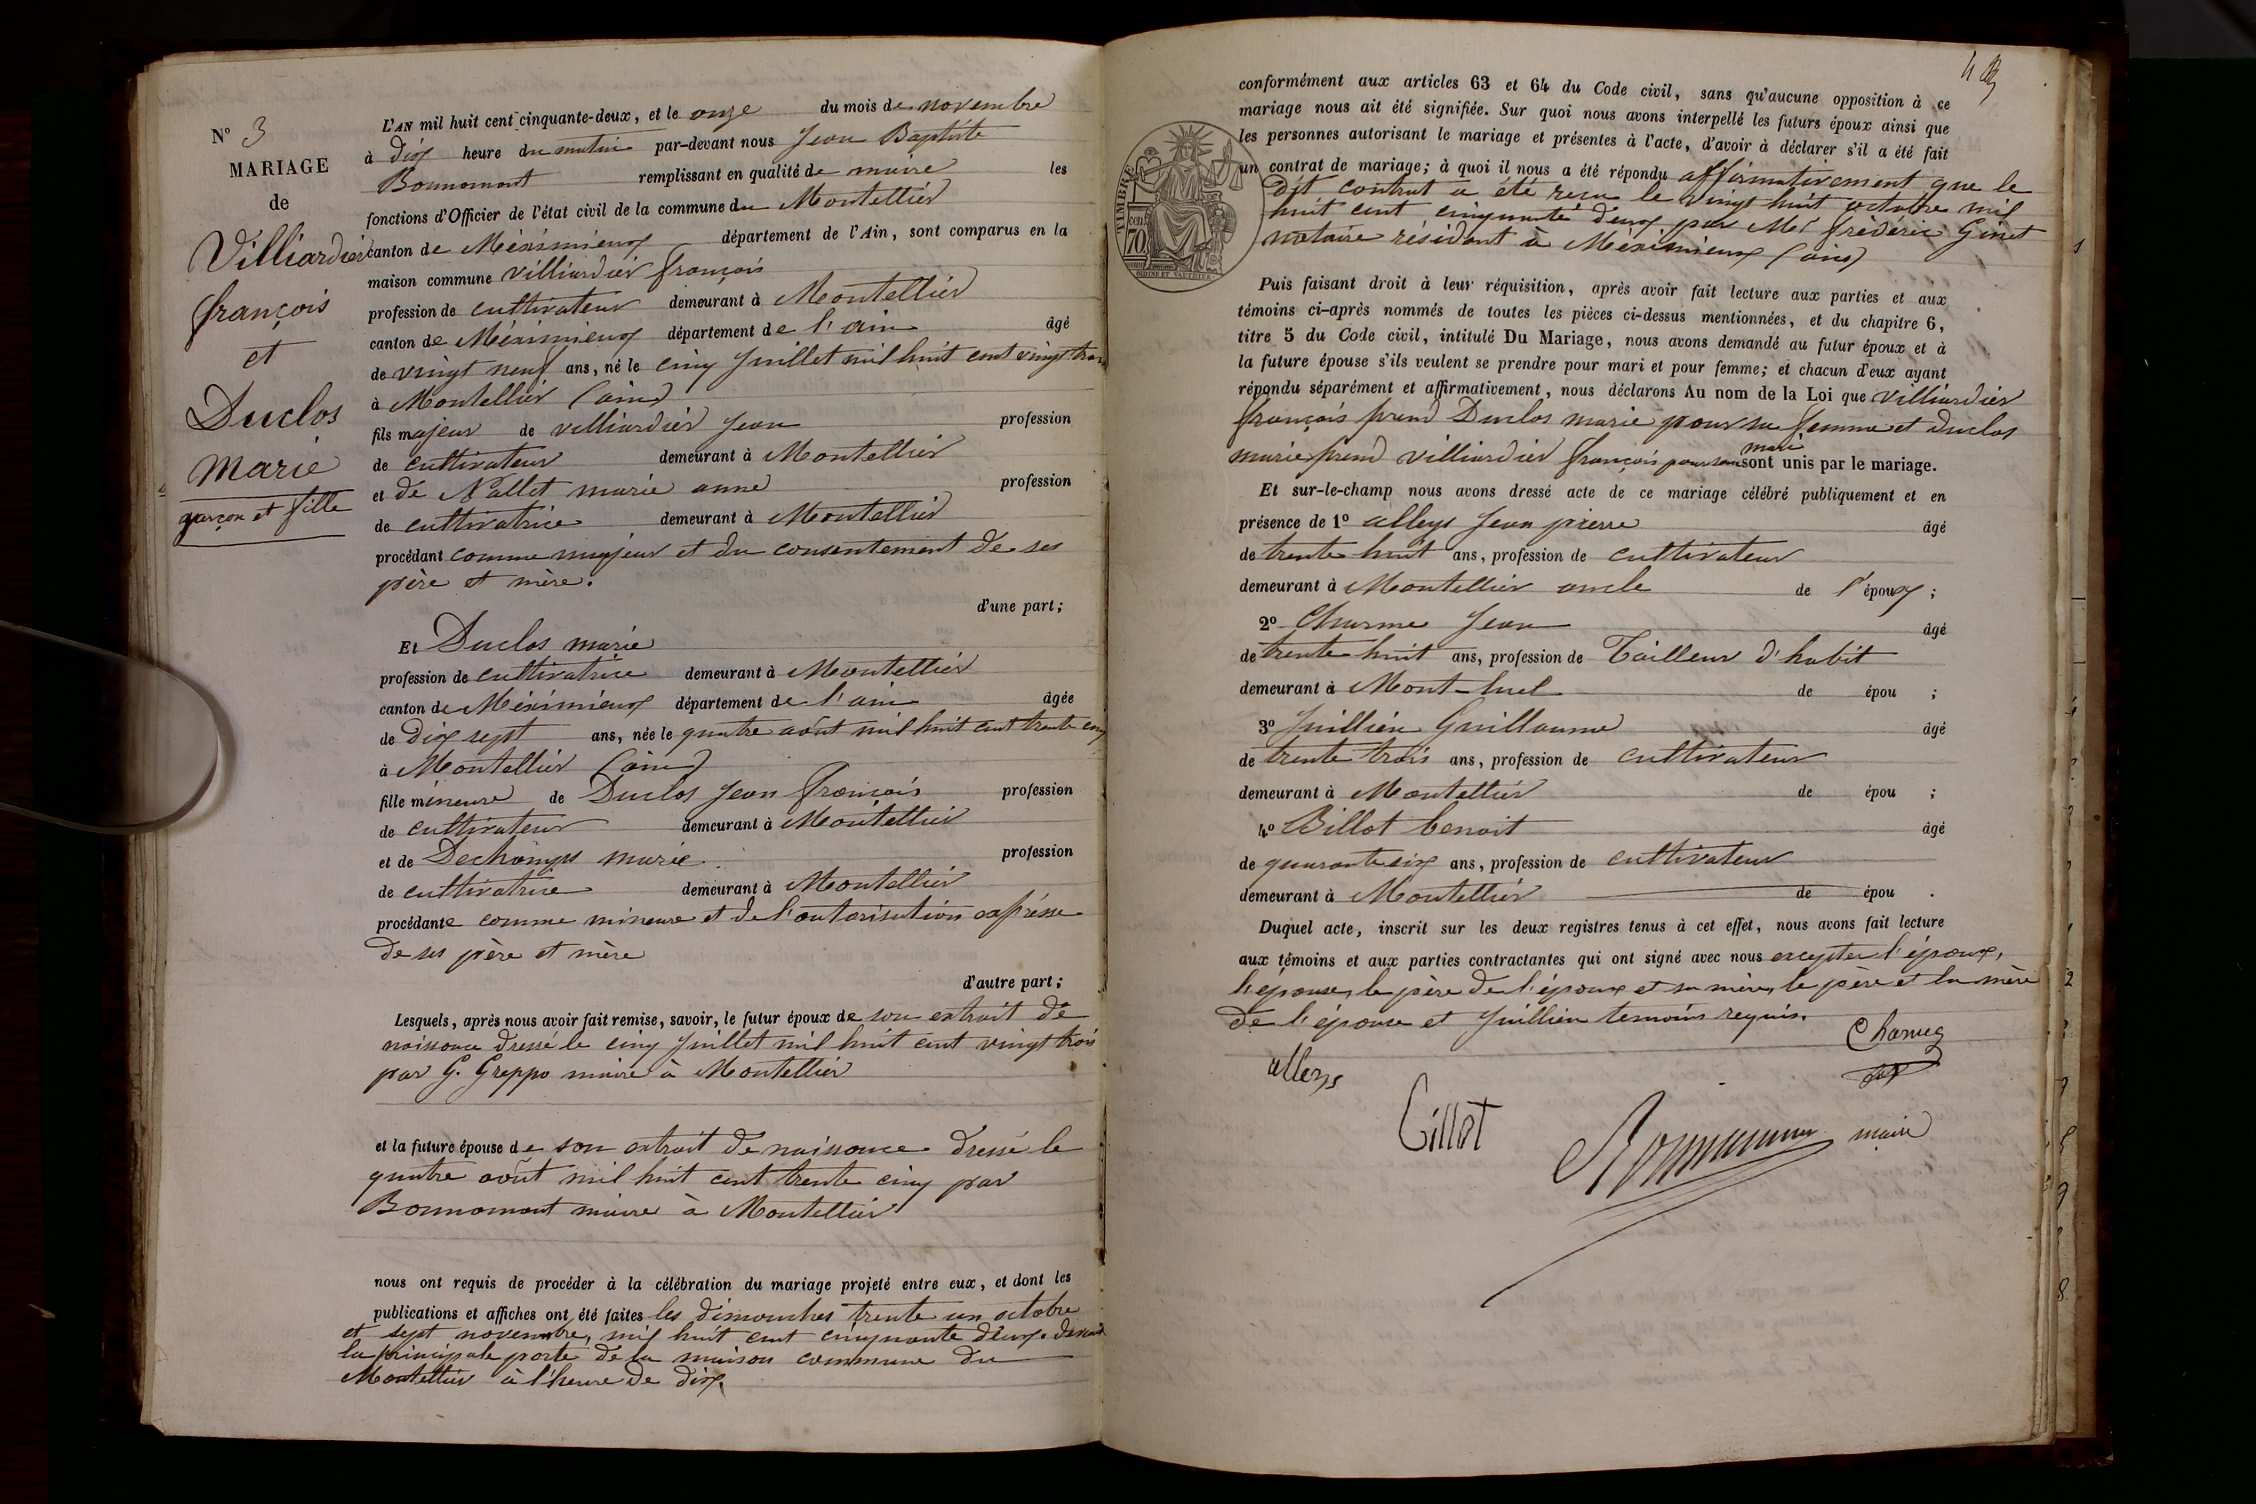 N° 3
MARIAGE
de
Villiardier
françois
et
Duclos
Marie
garçon et fille
L'AN mil huit cent cinquante-deux, et le onze du mois de novembre
à dix heure du matin par-devant nous Jean Baptiste
Bonnomont remplissant en qualité de maire les
fonctions d'Officier de l'état civil de la commune du Montellier
canton de Méximieux département de l'Ain, sont comparus en la
maison commune Villiardier françois
profession de cultivateur demeurant à Montellier
canton de Méximieux département de l'ain âgé
de vingt neuf ans, né le cinq Juillet mil huit cent vingt trois
à Montellier (ain)
fils majeur de villiardier Jean profession
de cultivateur demeurant à Montellier
et de Nallet marie anne profession
de cultivatrice demeurant à Montellier
procédant comme majeur et du consentement de ses
père et mère.
d'une part;
Et Duclos marie
profession de cultivatrice demeurant à Montellier
canton de Méximieux département de l'ain âgée
de dix sept ans, née le quatre août mil huit cent trente cinq
à Montellier (ain)
fille mineure de Duclos Jean françois profession
de cultivateur demeurant à Montellier
et de Dechamps marie profession
de cultivatrice demeurant à Montellier
procédante comme mineure et de l'autorisation expresse
de ses père et mère
d'autre part;
Lesquels, après nous avoir fait remise, savoir, le futur époux de son extrait de
naissance dressé le cinq Juillet mil huit cent vingt trois
par G. Greppo maire à Montellier
et la future épouse de son extrait de naissance dressé le
quatre août mil huit cent trente cinq par
Bonnomont maire à Montellier
nous ont requis de procéder à la célébration du mariage projeté entre eux, et dont les
publications et affiches ont été faites les dimanches trente un octobre
et sept novembre, mil huit cent cinquante deux. devant
la principale porte de la maison commune du
Montellier à l'heure de dix.
conformément aux articles 63 et 64 du Code civil, sans qu'aucune opposition à ce
mariage nous ait été signifiée. Sur quoi nous avons interpellé les futurs époux ainsi que
les personnes autorisant le mariage et présentes à l'acte, d'avoir à déclarer s'il a été fait
un contrat de mariage; à quoi il nous a été répondu affirmativement que le
dit contrat a été reçu le vingt huit octobre mil
huit cent cinquante deux par Me frédéric Ginet
notaire résidant à Méximieux (ain)
TIMBRE
70
Puis faisant droit à leur réquisition, après avoir fait lecture aux parties et aux
témoins ci-après nommés de toutes les pièces ci-dessus mentionnées, et du chapitre 6,
titre 5 du Code civil, intitulé Du Mariage, nous avons demandé au futur époux et à
la future épouse s'ils veulent se prendre pour mari et pour femme; et chacun d'eux ayant
répondu séparément et affirmativement, nous déclarons Au nom de la Loi que villiardier
françois prend Duclos marie pour sa femme et duclos
marie prend villiardier françois pour son mari sont unis par le mariage.
Et sur-le-champ nous avons dressé acte de ce mariage célébré publiquement et en
présence de 1° alleys Jean pierre âgé
de trente huit ans, profession de cultivateur
demeurant à Montellier oncle de l'époux;
2° Jean âgé
de trente huit ans, profession de Tailleur d'habit
demeurant à Mont-luel de épou ;
3° Juillien Guillaume âgé
de trente trois ans, profession de cultivateur
demeurant à Montellier de épou ;
4° Billot benoit âgé
de quarante six ans, profession de cultivateur
demeurant à Montellier de épou .
Duquel acte, inscrit sur les deux registres tenus à cet effet, nous avons fait lecture
aux témoins et aux parties contractantes qui ont signé avec nous excepter l'époux,
l'épouse, le père de l'époux et sa mère, le père et la mère
de l'épouse et Juillien temoins requis.
alleys
maire